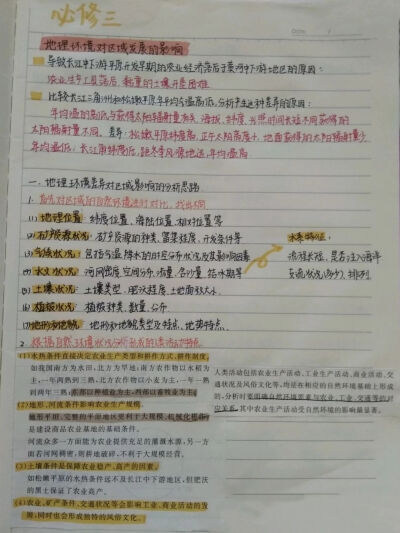 必修三
地理环境对区域发展的影响
导致长江中下游平原开发早期的农业经济落后于黄河中下游地区的原因:
农业生产工具落后,黏重的土壤开垦困难
比较长江三角洲和松嫩平原年平均气温高低,分析产生这种差异的原因:
年均温的高低与获得太阳辐射量有关,海拔、纬度、光照时间长短不同获得的
太阳辐射量不同。差异:松嫩平原纬度高,正午太阳高度小,地面获得的太阳辐射量少,
年均温低;长江三角洲纬度低,距冬季风源地远,年均温高
一、地理环境差异对区域影响的分析思路
1. 首先对区域的自然环境进行对比,找出不同
(1)地理位置:纬度位置、海陆位置、相对位置等
(2)矿产资源状况:矿产资源的种类、富集程度、开发条件等
(3)气候状况:包括气温、降水的时空分布状况及其影响因素
(4)水文状况:河网密度、空间分布、流量、含沙量、结冰期等
(5)土壤状况:土壤类型、肥沃程度、土地面积大小
(6)植被状况:植被种类、数量、分布
(7)地形和地貌:地形和地貌类型及特点、地势特点
水系特征:
流程长短、是否注入海洋
支流状况(多少)、排列
2. 根据自然环境状况分析形成的活动的特点
(1)水热条件直接决定农业生产类型和耕作方式、耕作制度,
如我国南方为水田,北方为旱地;南方农作物以水稻为
主,一年两熟到三熟,北方农作物以小麦为主,一年一熟
到两年三熟;东部以种植业为主,西部以畜牧业为主。
(2)地形、河流条件影响农业生产规模
地形平坦、完整的平原地区更利于大规模、机械化耕作,
是建设商品农业基地的基础条件。
河流众多一方面能为农业提供充足的灌溉水源,另一方
面若河网稠密,则耕地破碎,不利于大规模经营。
(3)土壤条件是保障农业稳产、高产的因素。
如松嫩平原的水热条件远不及长江中下游地区,但肥沃
的黑土保证了农业高产。
(4)农业、矿产条件、交通状况等会影响工业、商业活动的发
展,同时也会形成独特的风俗文化。
人类活动包括农业生产活动、工业生产活动、商业活动、交
通状况及风俗文化等,均是在相应的自然环境基础上形成
的,分析时要明确自然环境要素与农业、工业、交通等的对
应关系,其中农业生产活动受自然环境的影响最显著。